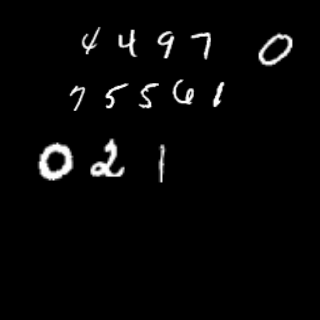 4 4 9 7 0
7 5 5 6 1
0 2 1